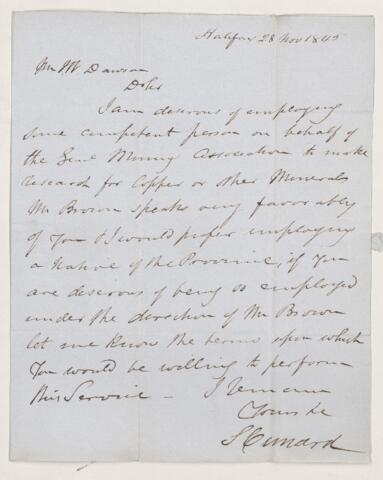 Halifax 28 Nov 1845
Mr W Dawson
D Sir
I am desirous of employing
some competent person on behalf of
the Genl Mining Association to make
research for Copper or other Minerals
Mr Brown speaks very favorably
of You & I would prefer employing
a Native of the Province, if You
are desirous of being so employed
under the direction of Mr Brown
let me know the terms upon which
You would be willing to perform
this Service – I remain
Yours &c
S Cunard